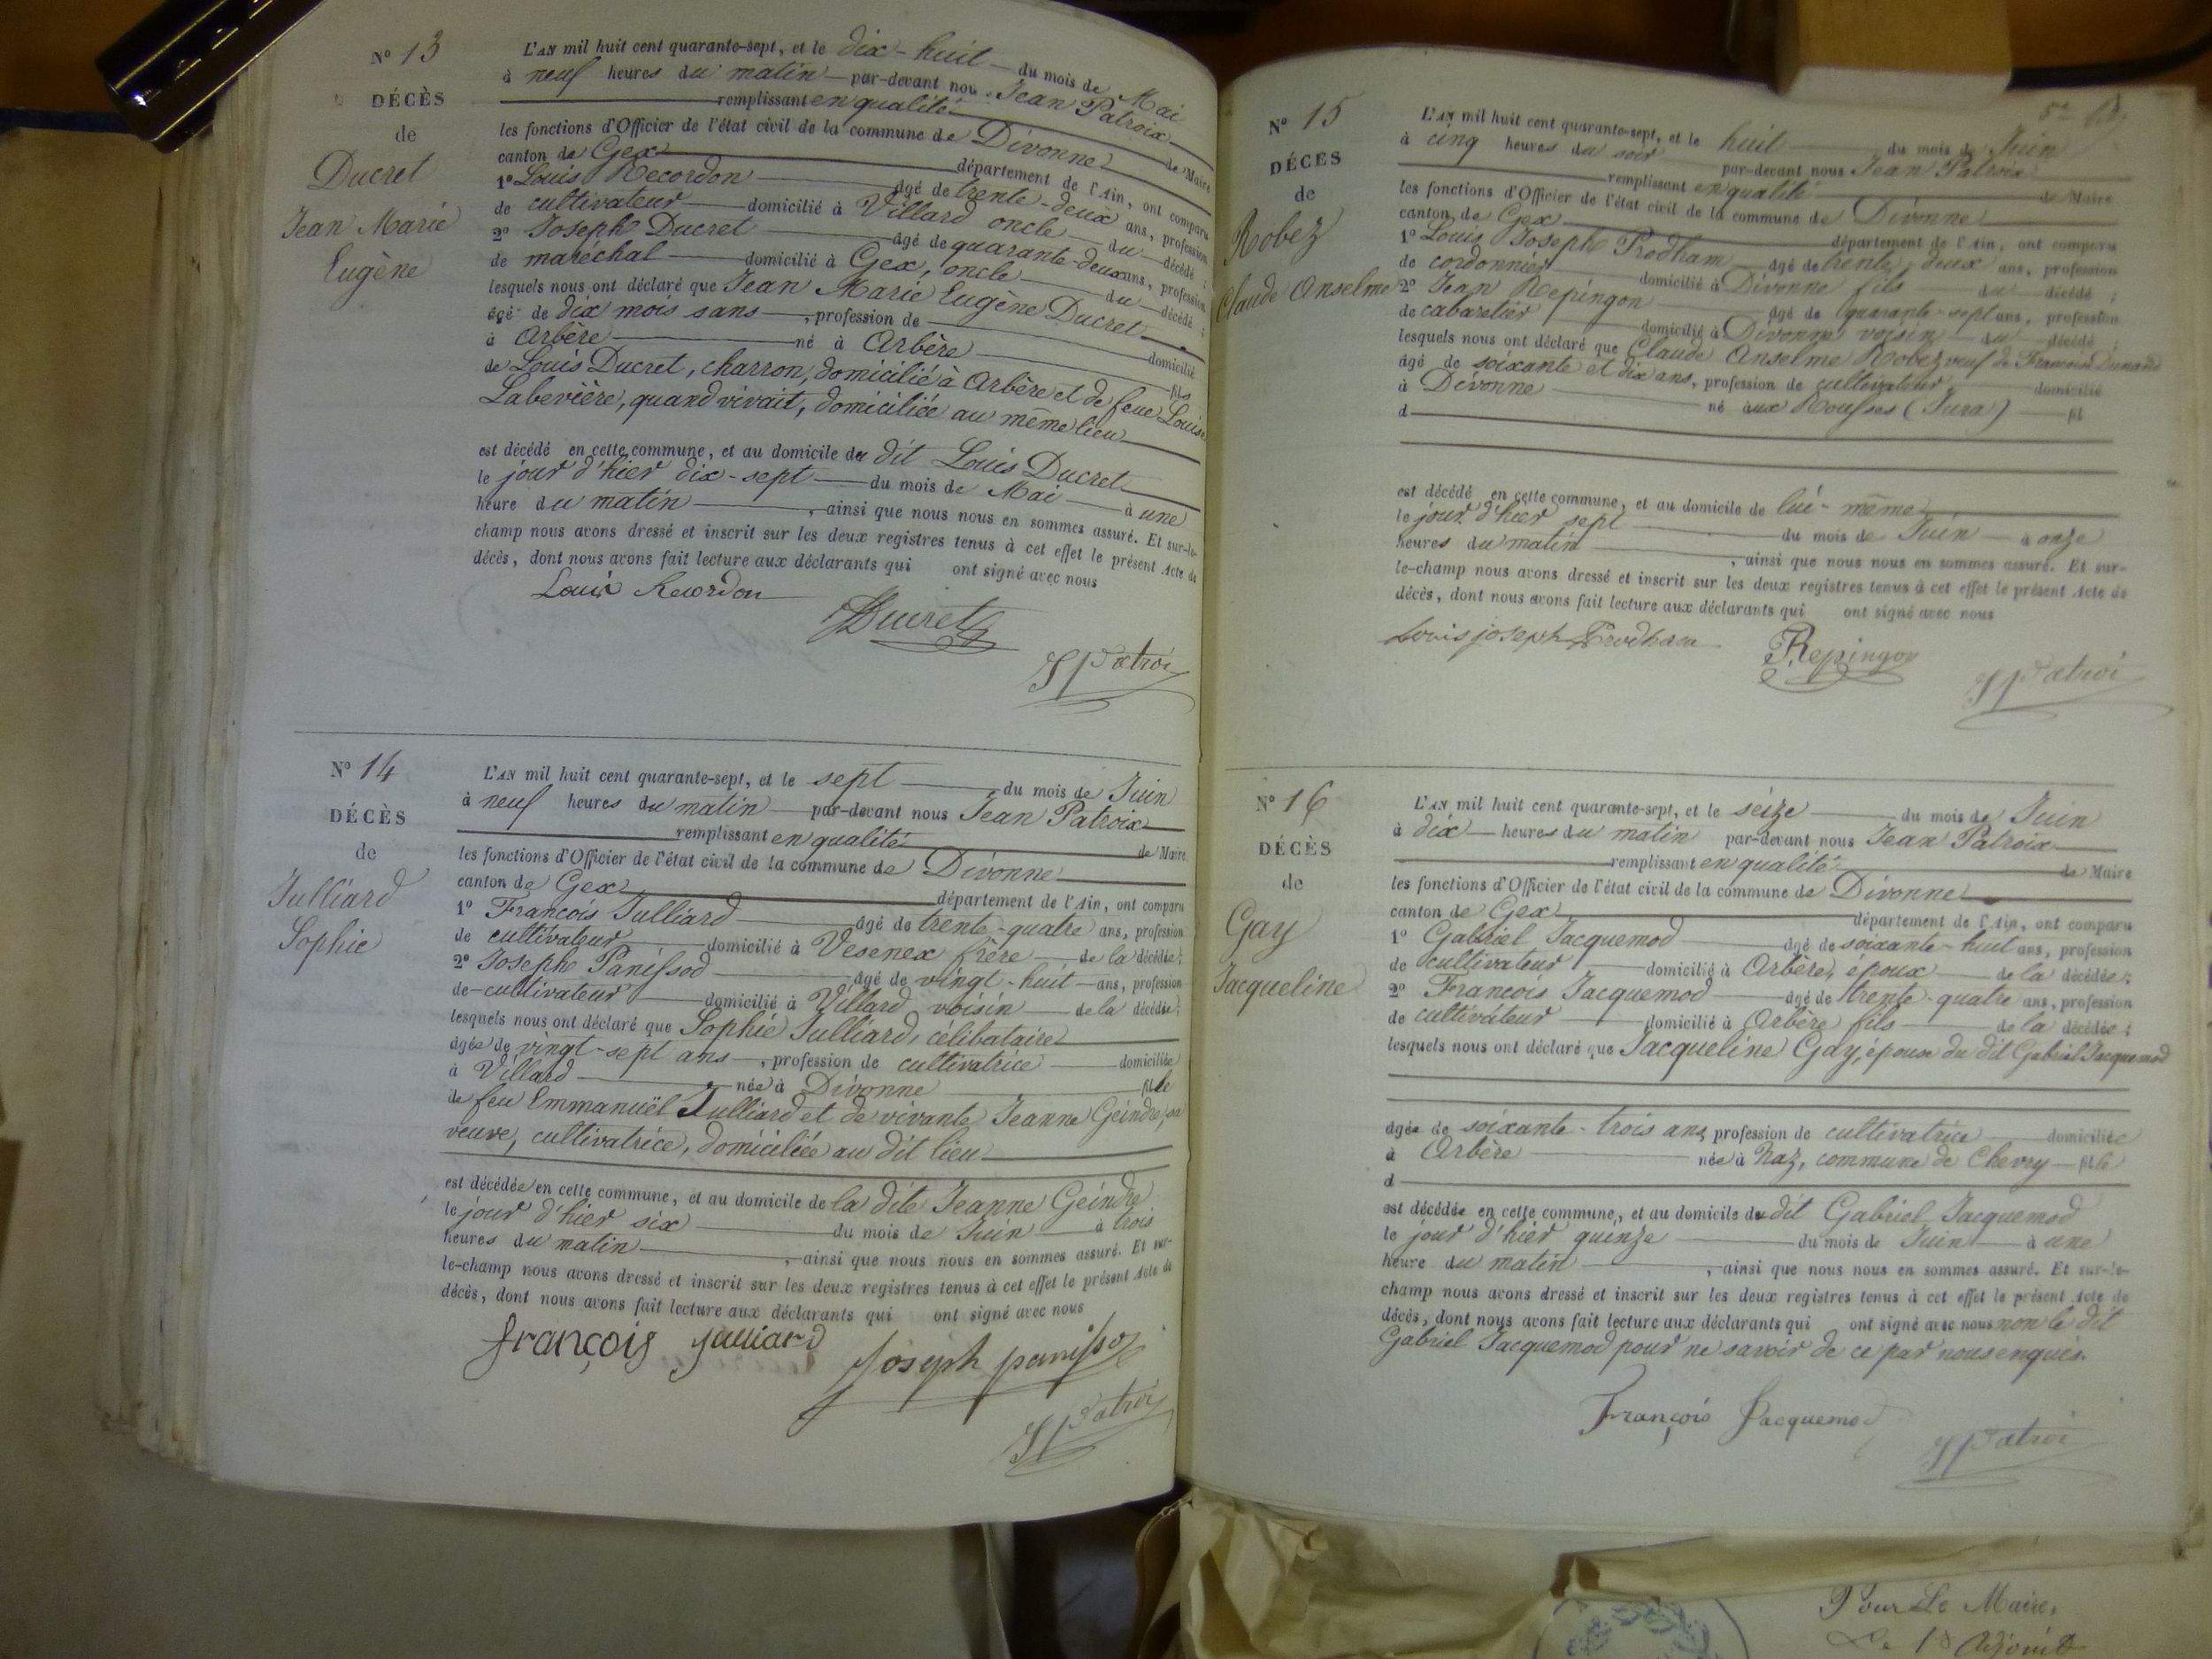 N° 13
DÉCÈS
de
Ducret
Jean Marie
Eugène
L'AN mil huit cent quarante-sept, et le dix-huit du mois de Mai
à neuf heures du matin par-devant nous Jean Patroix
remplissant en qualité de Maire
les fonctions d'Officier de l'état civil de la commune de Divonne
canton de Gex département de l'Ain, ont comparu
1° Louis Recordon âgé de trente-deux ans, profession
de cultivateur domicilié à Villard oncle du décédé ;
2° Joseph Ducret âgé de quarante-deux ans, profession
de maréchal domicilié à Gex, oncle du décédé ;
lesquels nous ont déclaré que Jean Marie Eugène Ducret
âgé de dix mois sans , profession de domicilié
à Arbère né à Arbère fils
de Louis Ducret, charron, domicilié à Arbère et de feue Louise
Laberière, quand vivait, domiciliée au même lieu
est décédé en cette commune, et au domicile du dit Louis Ducret
le jour d'hier dix-sept du mois de Mai à une
heure du matin , ainsi que nous nous en sommes assuré. Et sur-le-
champ nous avons dressé et inscrit sur les deux registres tenus à cet effet le présent Acte de
décès, dont nous avons fait lecture aux déclarants qui ont signé avec nous
Louis Recordon
Ducret
Patroi
N° 14
DÉCÈS
de
Julliard
Sophie
L'AN mil huit cent quarante-sept, et le sept du mois de Juin
à neuf heures du matin par-devant nous Jean Patroix
remplissant en qualité de Maire
les fonctions d'Officier de l'état civil de la commune de Divonne
canton de Gex département de l'Ain, ont comparu
1° François Julliard âgé de trente-quatre ans, profession
de cultivateur domicilié à Vesenex frère de la décédée ;
2° Joseph Panissod âgé de vingt-huit ans, profession
de cultivateur domicilié à Villard voisin de la décédée ;
lesquels nous ont déclaré que Sophie Julliard, célibataire
âgée de vingt-sept ans , profession de cultivatrice domiciliée
à Villard née à Divonne fille
de feu Emmanuël Julliard et de vivante Jeanne Geindre, sa
veuve, cultivatrice, domiciliée au dit lieu
est décédée en cette commune, et au domicile de la dite Jeanne Geindre
le jour d'hier six du mois de Juin à trois
heures du matin , ainsi que nous nous en sommes assuré. Et sur-
le-champ nous avons dressé et inscrit sur les deux registres tenus à cet effet le présent Acte de
décès, dont nous avons fait lecture aux déclarants qui ont signé avec nous
françois julliard
joseph panisso
Patroi
N° 15
DÉCÈS
de
Robez
Claude Anselme
L'AN mil huit cent quarante-sept, et le huit du mois de Juin
à cinq heures du soir par-devant nous Jean Patroix
remplissant en qualité de Maire
les fonctions d'Officier de l'état civil de la commune de Divonne
canton de Gex département de l'Ain, ont comparu
1° Louis Joseph Prodham âgé de trente-deux ans, profession
de cordonnier domicilié à Divonne fils du décédé ;
2° Jean Repingon âgé de quarante-sept ans, profession
de cabaretier domicilié à Divonne voisin du décédé ;
lesquels nous ont déclaré que Claude Anselme Robez veuf de Françoise Dunand
âgé de soixante et dix ans, profession de cultivateur domicilié
à Divonne né aux Rousses (Jura) fil
d
est décédé en cette commune, et au domicile de lui-même
le jour d'hier sept du mois de Juin à onze
heures du matin , ainsi que nous nous en sommes assuré. Et sur-
le-champ nous avons dressé et inscrit sur les deux registres tenus à cet effet le présent Acte de
décès, dont nous avons fait lecture aux déclarants qui ont signé avec nous
Louis joseph Prodham
Repingon
Patroi
N° 16
DÉCÈS
de
Gay
Jacqueline
L'AN mil huit cent quarante-sept, et le seize du mois de Juin
à dix heures du matin par-devant nous Jean Patroix
remplissant en qualité de Maire
les fonctions d'Officier de l'état civil de la commune de Divonne
canton de Gex département de l'Ain, ont comparu
1° Gabriel Jacquemod âgé de soixante-huit ans, profession
de cultivateur domicilié à Arbère, époux de la décédée ;
2° François Jacquemod âgé de trente-quatre ans, profession
de cultivateur domicilié à Arbère fils de la décédée ;
lesquels nous ont déclaré que Jacqueline Gay, épouse du dit Gabriel Jacquemod
âgée de soixante-trois ans, profession de cultivatrice domiciliée
à Arbère née à Naz, commune de Chevry fille
d
est décédée en cette commune, et au domicile du dit Gabriel Jacquemod
le jour d'hier quinze du mois de Juin à une
heure du matin , ainsi que nous nous en sommes assuré. Et sur-le-
champ nous avons dressé et inscrit sur les deux registres tenus à cet effet le présent Acte de
décès, dont nous avons fait lecture aux déclarants qui ont signé avec nous non le dit
Gabriel Jacquemod pour ne savoir de ce par nous enquis.
François Jacquemod
Patroi
Pour Le Maire,
Adjoint